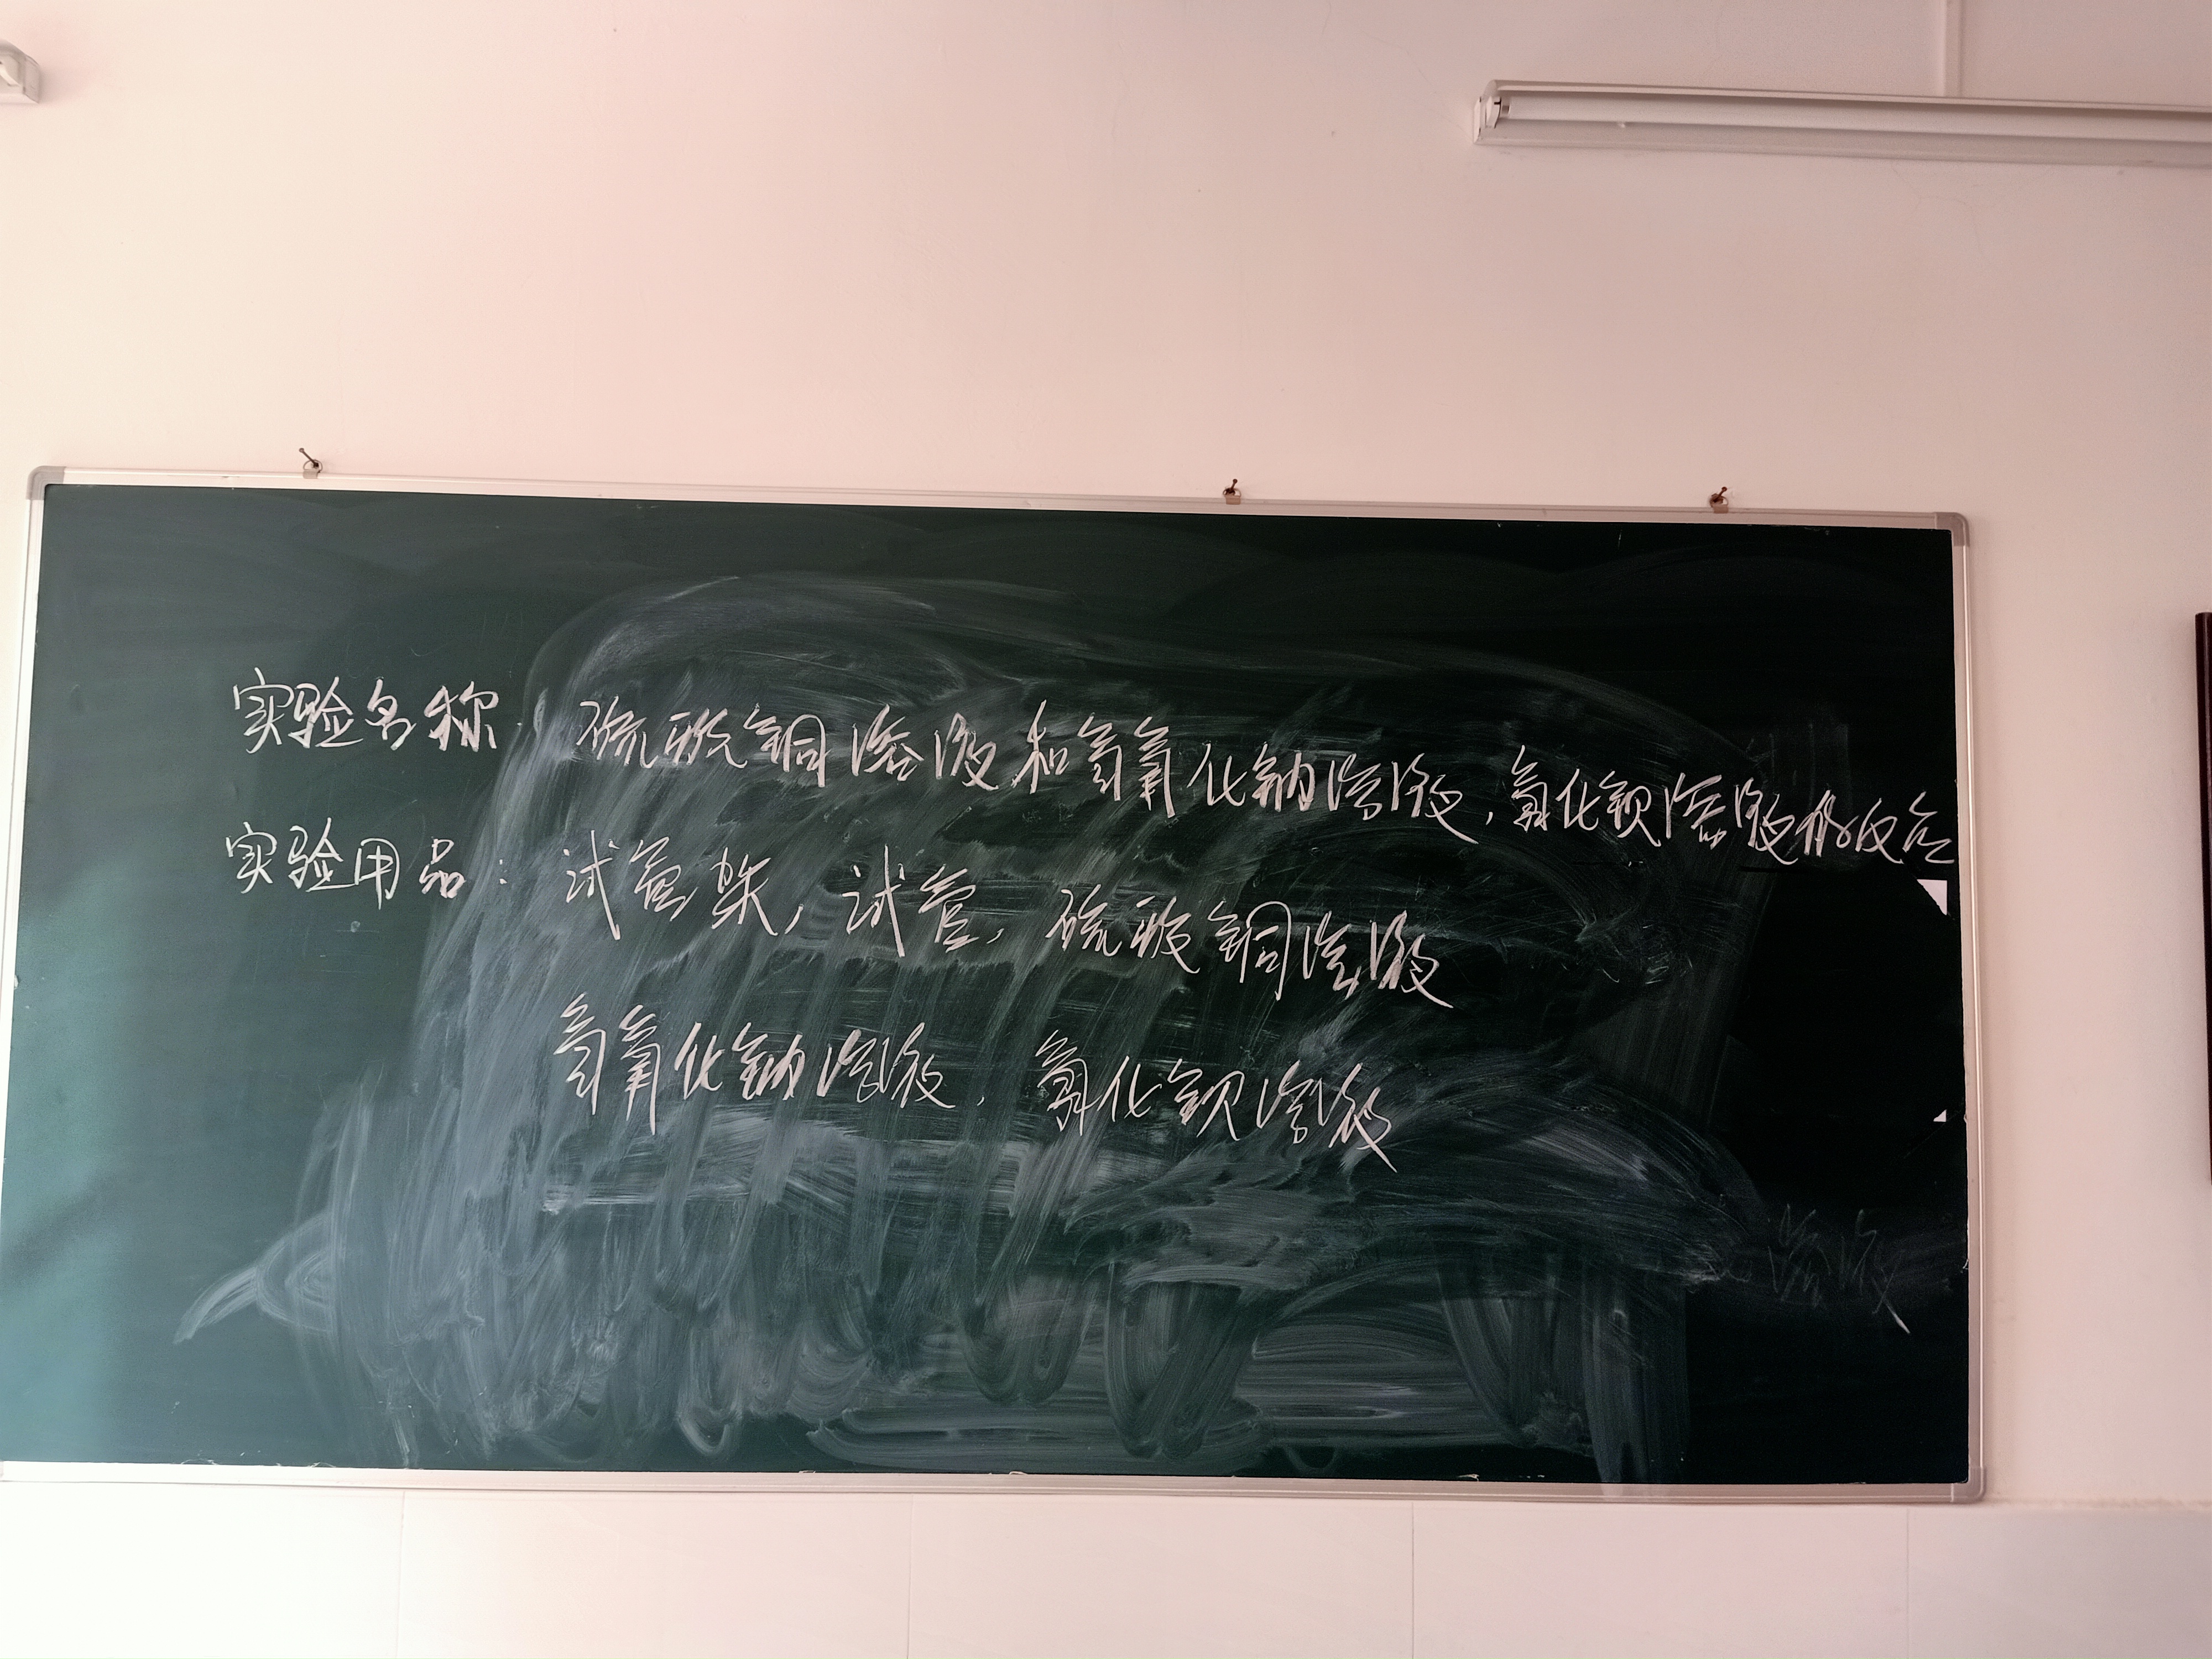 实验名称: 硫酸铜溶液和氢氧化钠溶液,氯化钡溶液的反应
实验用品: 试管架,试管,硫酸铜溶液
氢氧化钠溶液,氯化钡溶液
溶液